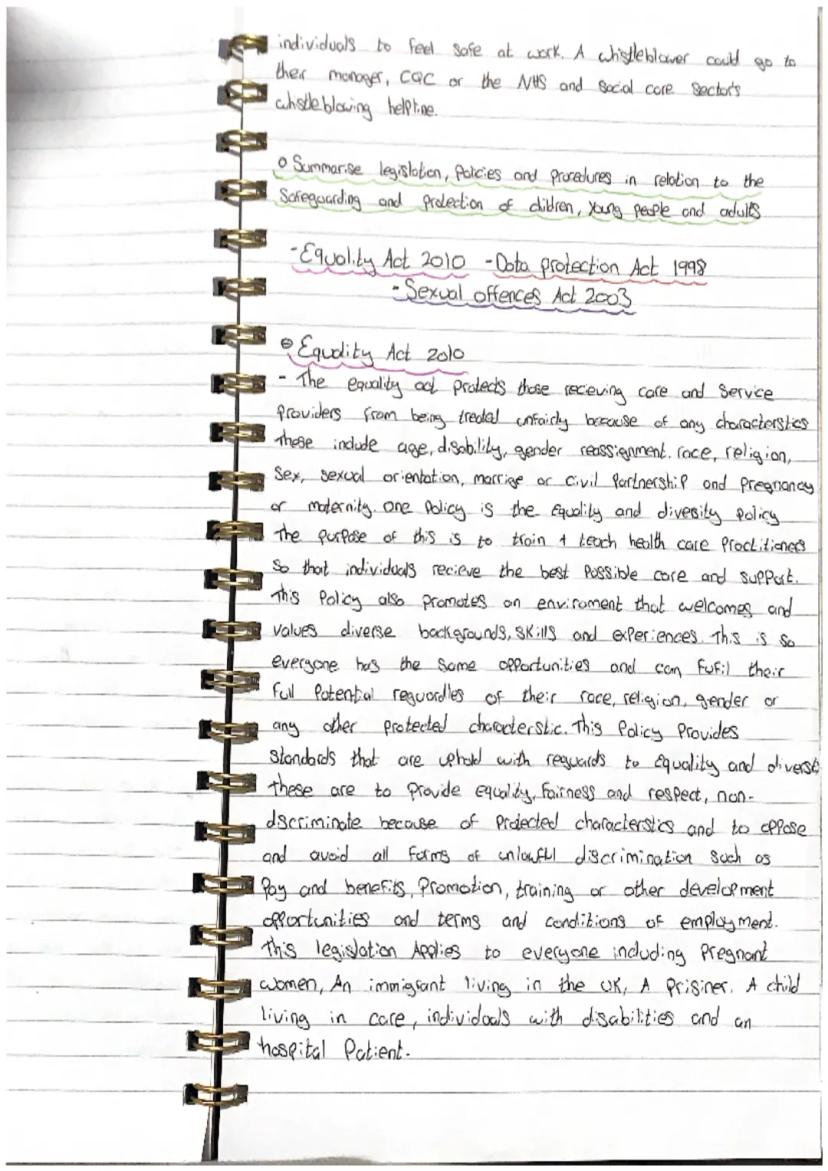 individuals to feel safe at work. A whistleblower could go to
their manager, CQC or the NHS and social care sector's
whistleblowing helpline.
Summarise legislation, policies and procedures in relation to the
Safeguarding and protection of children, young people and adults
- Equality Act 2010 - Data protection Act 1998
- Sexual offences Act 2003
Equality Act 2010
- The equality act protects those recieving care and service
providers from being treated unfairly because of any characterstics
these include age, disability, gender reassignment. race, religion,
sex, sexual orientation, marrige or civil partnership and pregnancy
or maternity. one policy is the equality and divesity policy
The purpose of this is to train + teach health care practitioners
so that individuals recieve the best possible care and support.
This policy also promotes an enviroment that welcomes and
values diverse backgrounds, skills and experiences. This is so
everyone has the same opportunities and can fufil their
full potential reguardles of their race, religion, gender or
any other protected characterstic. This policy provides
standards that are uphold with reguards to equality and diversty
these are to provide equality, fairness and respect, non-
dscriminate because of protected characterstics and to oppose
and avoid all forms of unlawful discrimination such as
pay and benefits, promotion, training or other development
opportunities and terms and conditions of employment.
This legislation Applies to everyone including pregnant
women, An immigrant living in the UK, A prisiner. A child
living in care, individuals with disabilities and an
hospital patient.